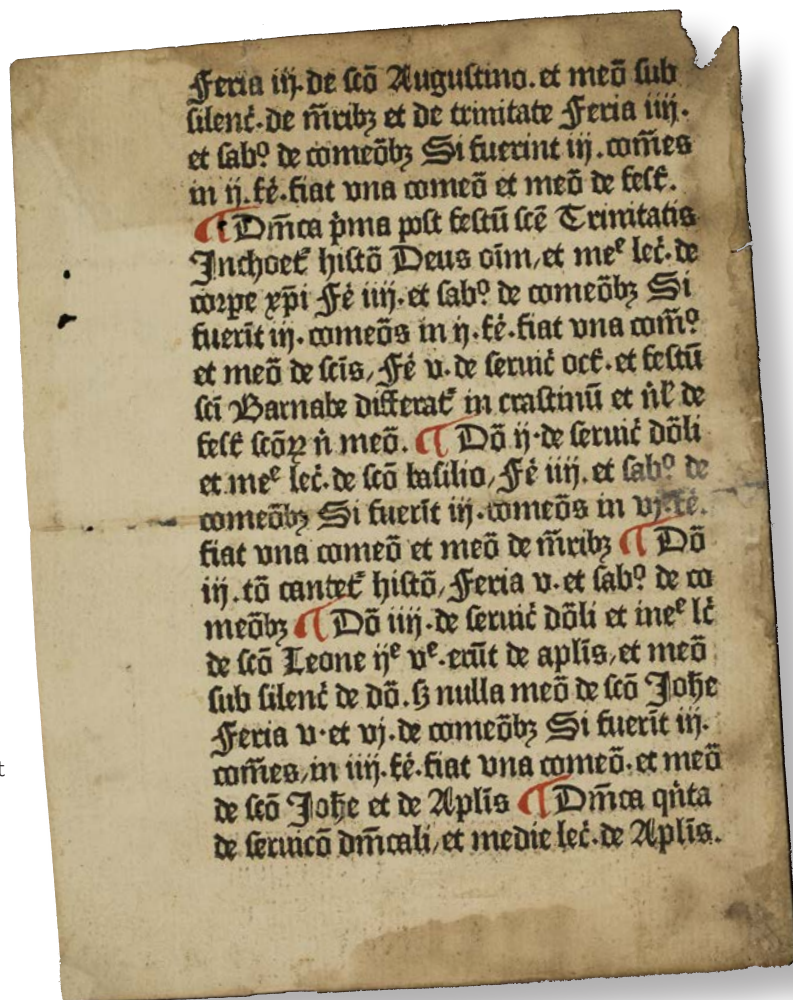 Feria iij. de scō Augustino. et meō sub
silenc̄. de m̄ribꝫ et de trinitate Feria iiij.
et sab⁹ de comeōbꝫ Si fuerint iij. com̄es
in ij. fē. fiat vna comeō et meō de fest̄.
¶ Dm̄ca p̄ma post festū scē Trinitatis
Inchoet̄ histō Deus oīm, et meᵉ lec̄. de
corpe xp̄i Fē iiij. et sab⁹ de comeōbꝫ Si
fuerīt iij. comeōs in ij. fē. fiat vna com̄⁹
et meō de scīs, Fē v. de seruic̄ oct̄. et festū
scī Barnabe differat̄ in crastinū et n̄l̄ de
fest̄ scōꝝ n̄ meō. ¶ Dō ij. de seruic̄ dōli
et meᵉ lec̄. de scō basilio, Fē iiij. et sab⁹ de
comeōbꝫ Si fuerīt iij. comeōs in vj. fē.
fiat vna comeō et meō de m̄ribꝫ ¶ Dō
iij. tō cantet̄ histō, Feria v. et sab⁹ de co
meōbꝫ ¶ Dō iiij. de seruic̄ dōli et meᵉ lc̄
de scō Leone ijᵉ vᵉ. erūt de aplīs, et meō
sub silenc̄ de dō. ẜꝫ nulla meō de scō Joħe
Feria v. et vj. de comeōbꝫ Si fuerīt iij.
com̄es, in iiij. fē. fiat vna comeō. et meō
de scō Joħe et de Aplīs ¶ Dm̄ca qn̄ta
de seruicō dm̄cali, et medie lec̄. de Aplīs.
t